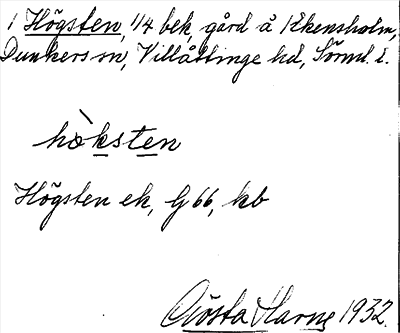 1 Högsten, 1/4 bek, gård å Ekensholm,
Dunkers sn, Villåttinge hd, Sörml. l.
hö̀ksten
Högsten ek, G 66, kb
Gösta Harne 1932.